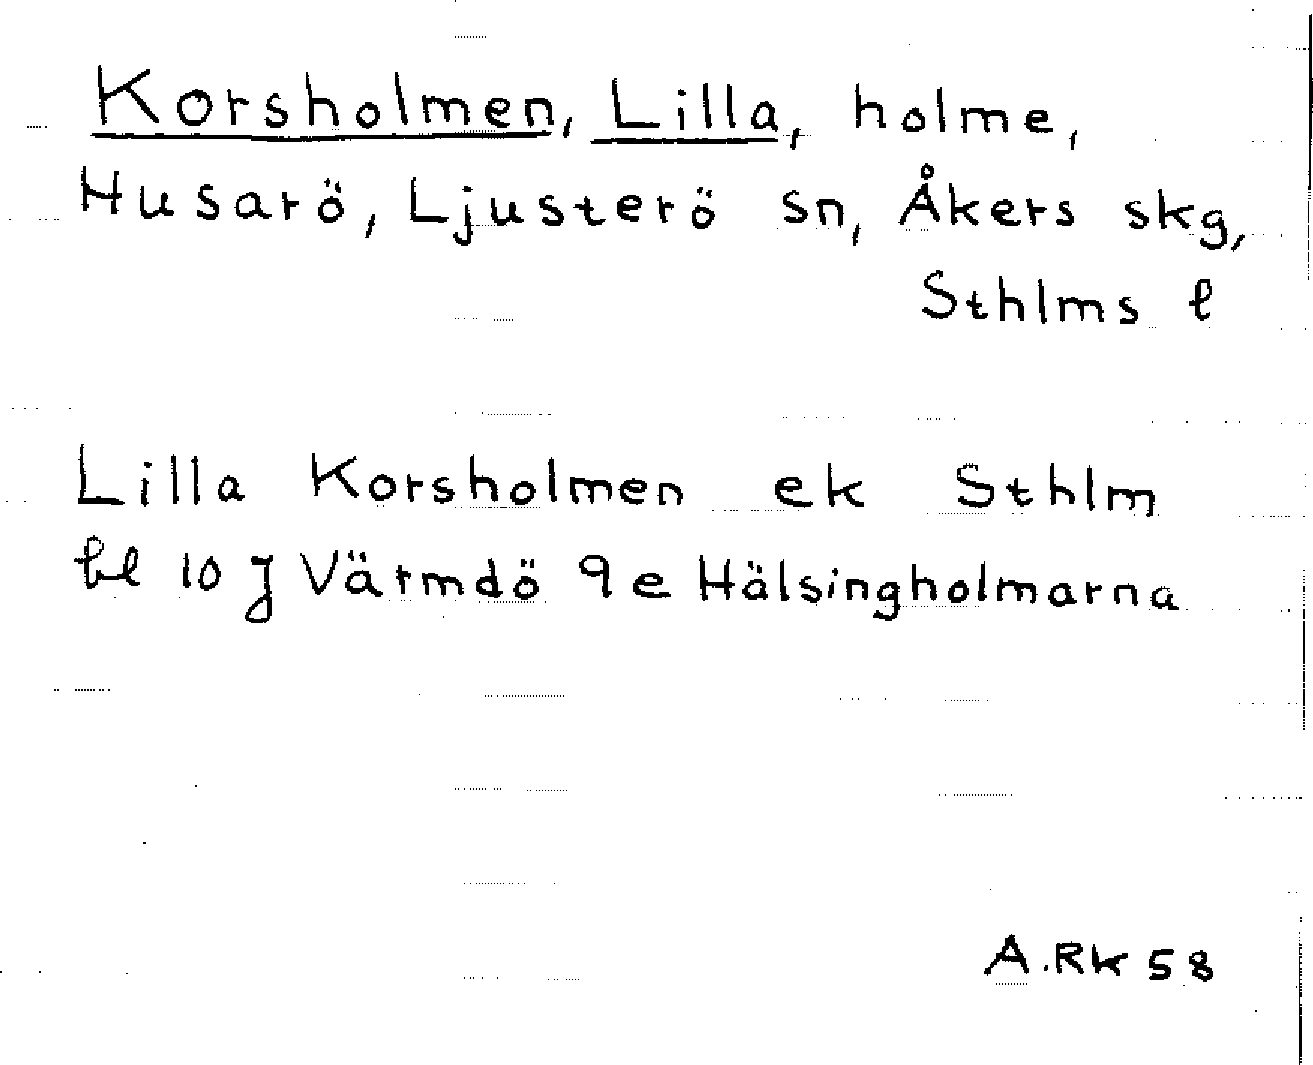 Korsholmen, Lilla, holme,
Husarö, Ljusterö sn, Åkers skg,
Sthlms l
Lilla Korsholmen ek Sthlm
bl 10 J Värmdö 9e Hälsingholmarna
A.Rk 58